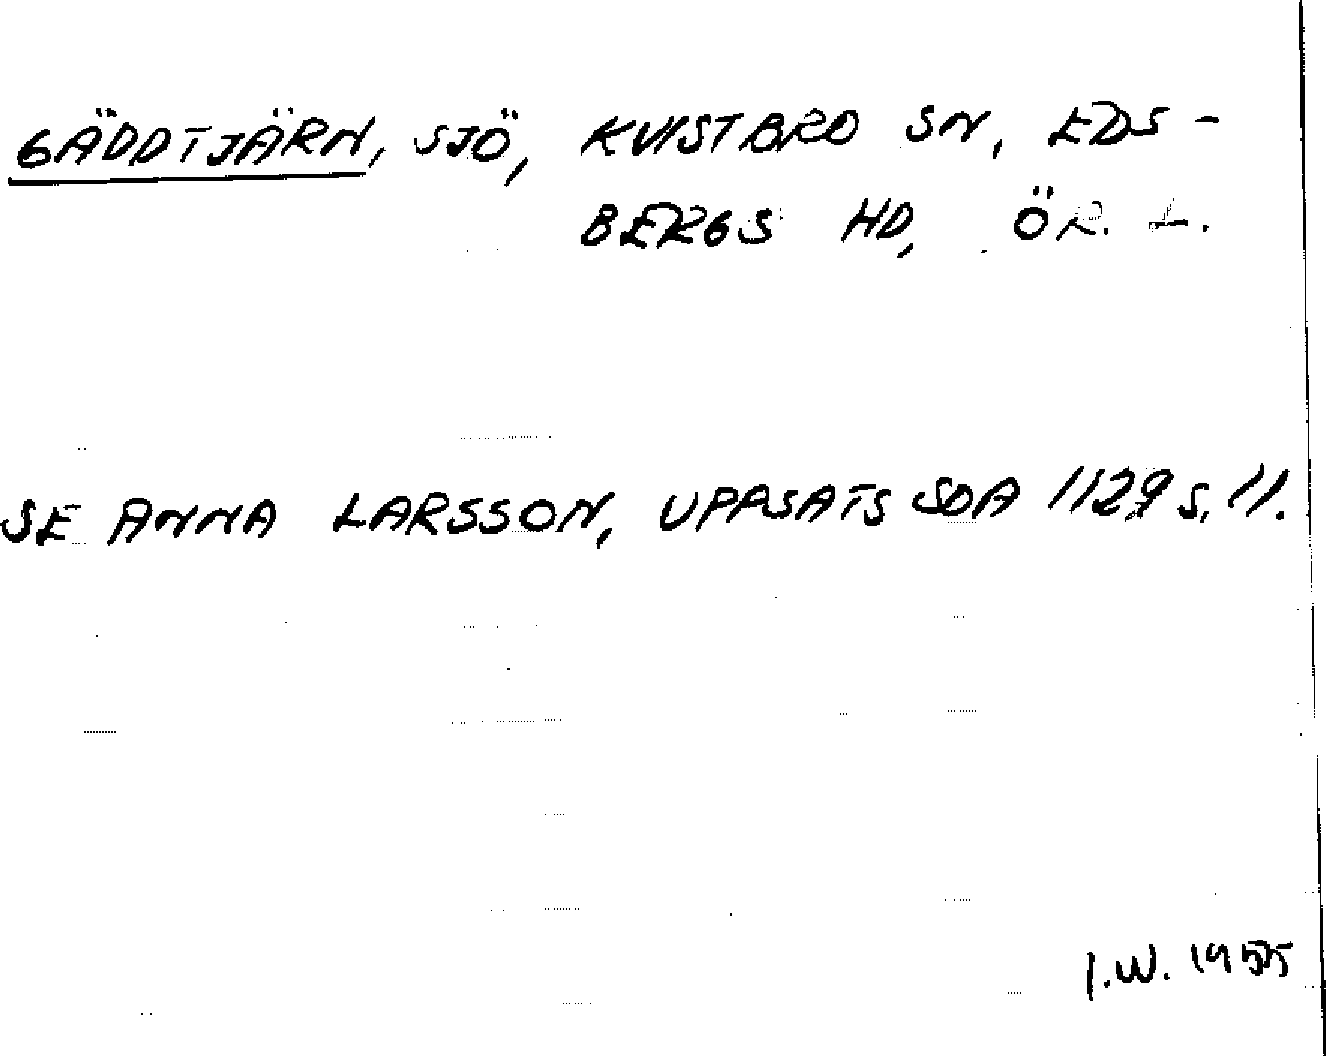 GÄDDTJÄRN, SJÖ, KVISTBRO SN, EDS-
BERGS HD, ÖR. L.
SE ANNA LARSSON, UPPSATS SOA 1129 S. 11.
I.W. 1955